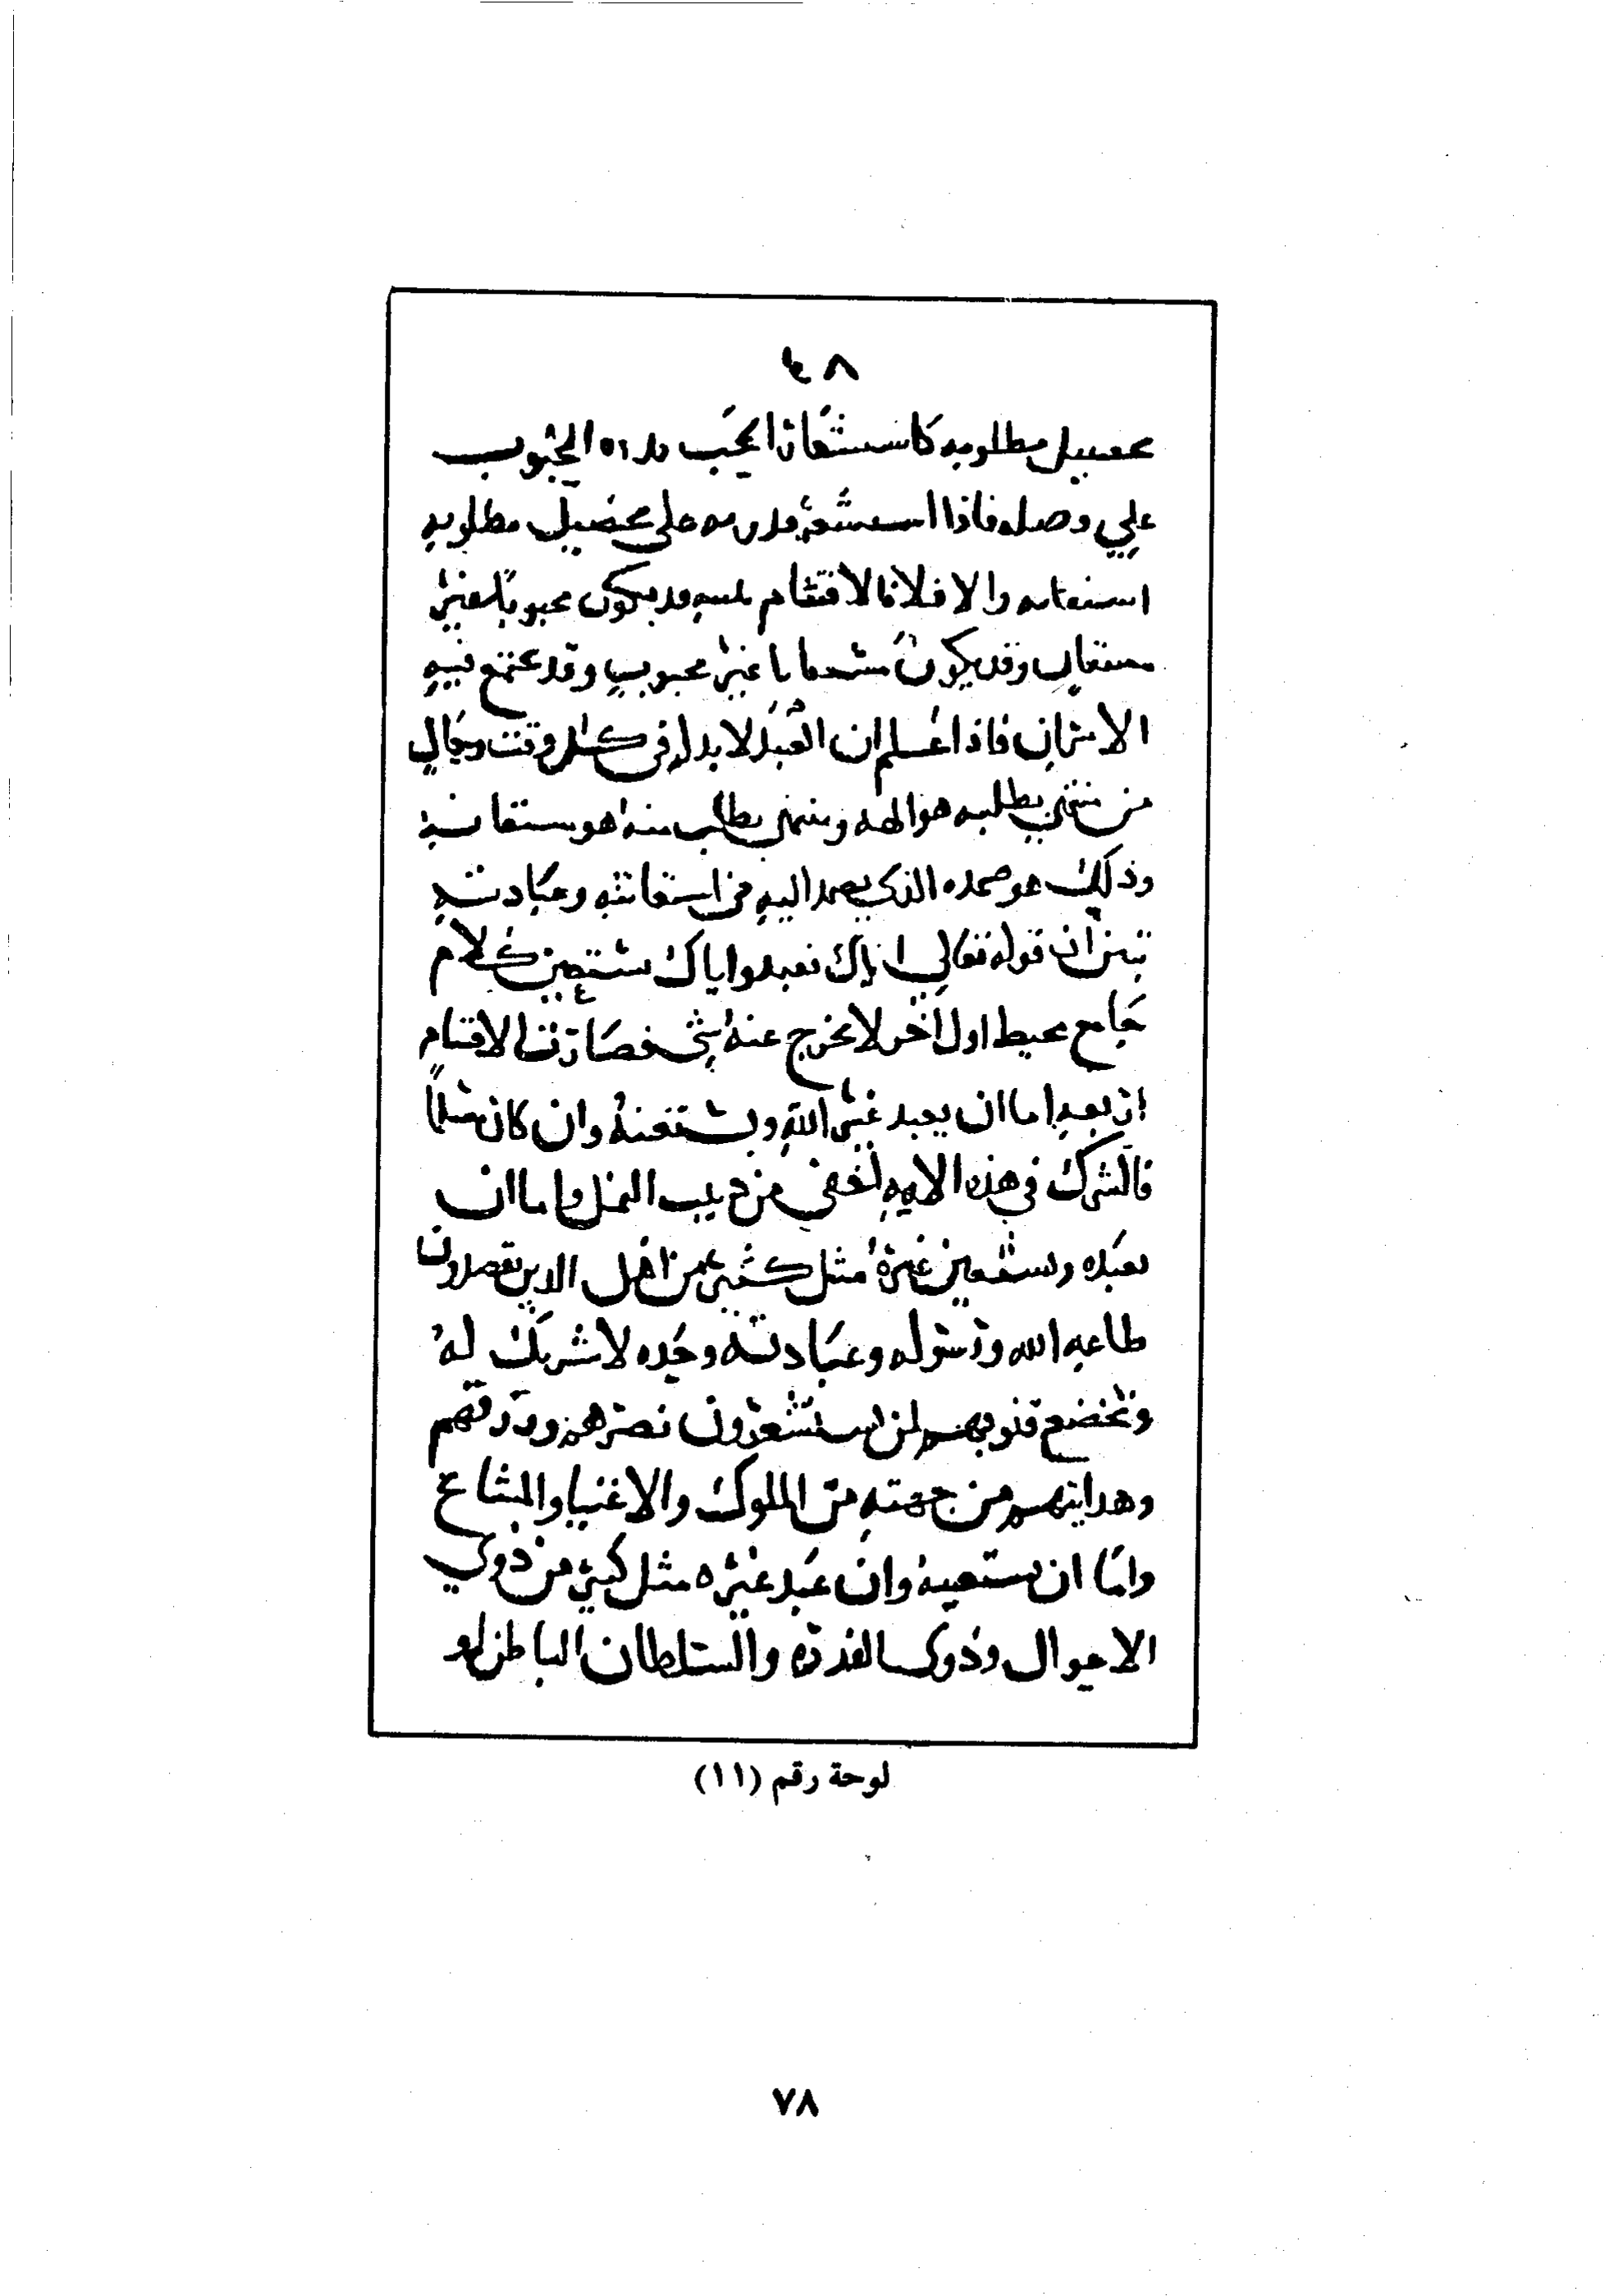 ٤٨
تحصيل مطلوبه كاستشعار المحب قدرة المحبوب
علي وصله فاذا استشعر قدرته على تحصيل مطلوبه
استعانه والا فلا فالاقسام ثلثه قد يكون محبوبا غير
مستعان وقد يكون مستعانا غير محبوب وقد يجتمع فيه
الامران فاذا علم ان العبد لابد له في كل وقت وحال
من منتهى يطلبه هو الهه ومنتهى يطلب منه هو مستعانه
وذلك هو صمده الذي يصمد اليه في استعانته وعبادته
تبين ان قوله تعالي اياك نعبد واياك نستعين كلام
جامع محيط اول اخر لا يخرج عنه شي فصارت الاقسام
اربعه اما ان يعبد غير الله ويستعينه وان كان مسلما
فالشرك في هذه الامه اخفى من دبيب النمل واما ان
يعبده ويستعين غيره مثل كثير من اهل الدين يقصدون
طاعه الله ورسوله وعبادته وحده لا شريك له
وتخضع قلوبهم لمن يستشعرون نصرهم ورزقهم
وهدايتهم من جهته من الملوك والاغنيا والمشايخ
واما ان يستعينه وان عبد غيره مثل كثير من ذوي
الاحوال وذوي القدرة والسلطان الباطن او
لوحة رقم (١١)
٧٨